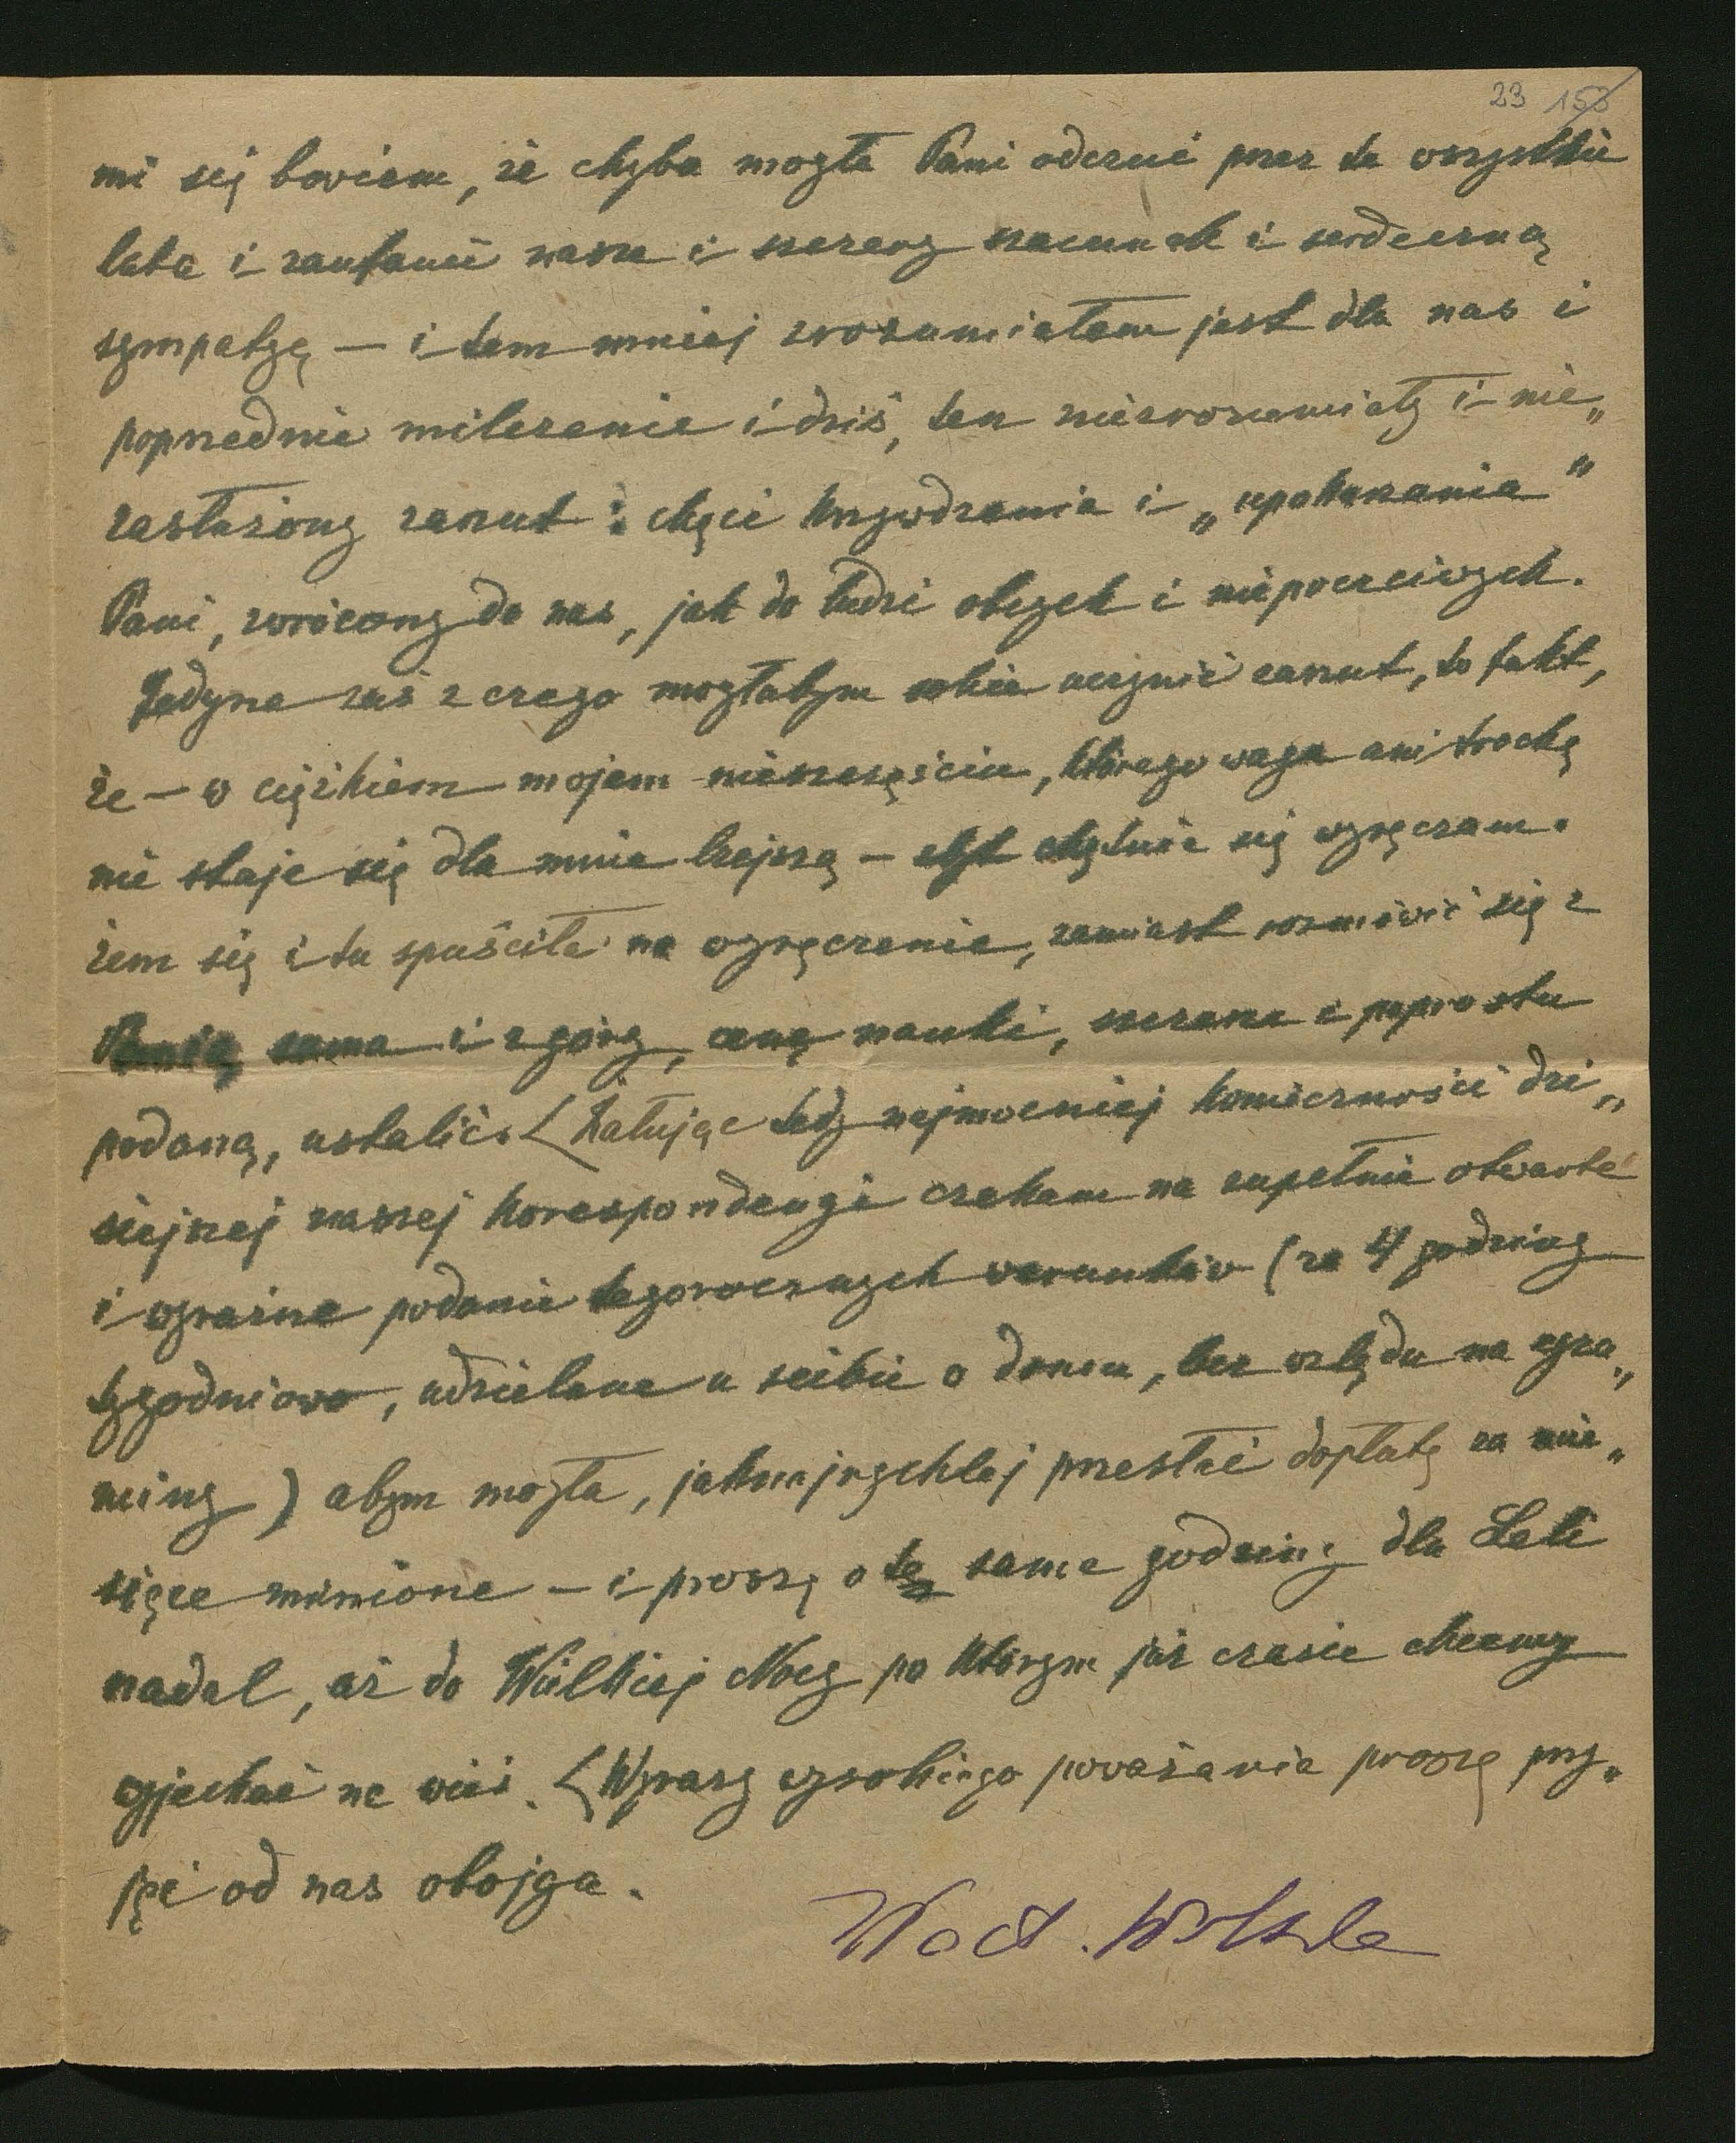 23 153
mi się bowiem, że chyba mogła Pani odczuć przez te wszystkie
lata i zaufanie nasze i szczery szacunek i serdeczną
sympatyę — i tem mniej zrozumiałem jest dla nas i
poprzednie milczenie i dziś, ten niezrozumiały i nie„
zasłużony zarzut : chęci krzywdzenia i „upokarzania"
Pani, zwrócony do nas, jak do ludzi obcych i niepoczciwych.
Jedyne zaś z czego mogłabym sobie uczynić zarzut, to fakt,
że — w ciężkiem mojem nieszczęściu, którego waga ani trochę
nie staje się dla mnie lżejszą — zbyt chętnie się wyręczam.
żem się i tu spuściła na wyręczenie, zamiast rozmówić się z
Panią sama i z góry, cenę nauki, szczerze i poprostu
podaną, ustalić. Żałując tedy najmocniej konieczności dzi„
siejszej naszej korespondencyi czekam na zupełnie otwarte
i wyraźne podanie tegorocznych warunków (za 4 godziny
tygodniowo, udzielane u siebie w domu, bez względu na egza„
miny) abym mogła, jaknajrychlej przesłać dopłatę za mie„
siące minione — i proszę o te same godziny dla Leli
nadal, aż do Wielkiej Nocy po którym już czasie chcemy
wyjechać na wieś. Wyrazy wysokiego poważania proszę przy„
jąć od nas obojga.
Wacł. Wolska